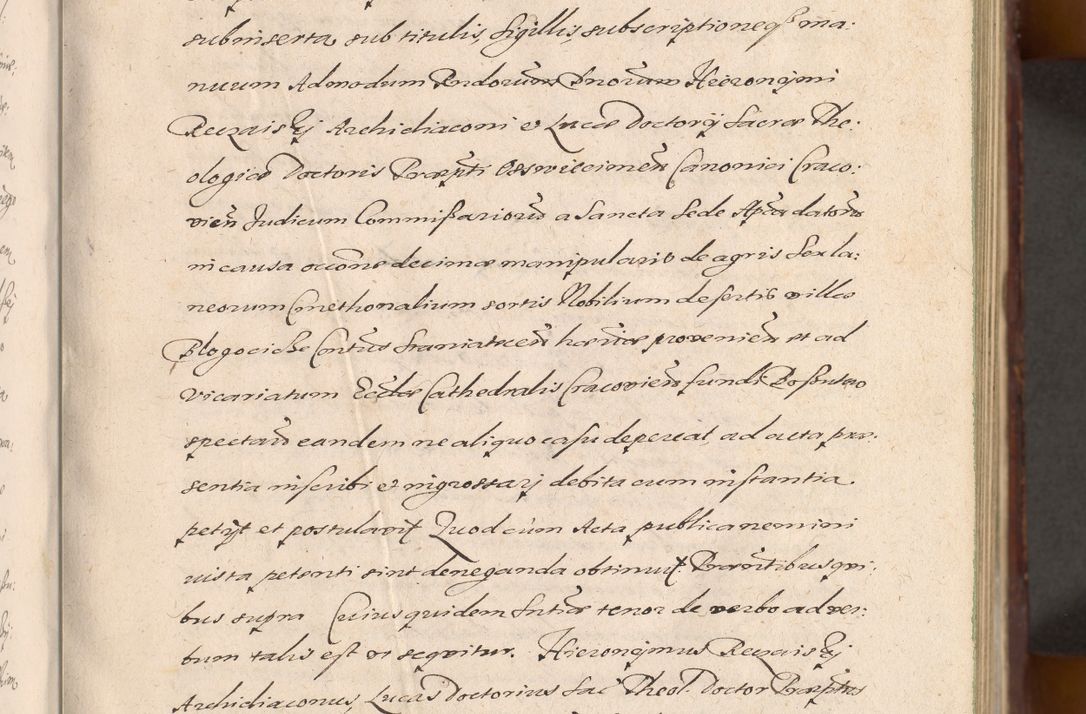 subinserta sub titulis, Sigillis, subscriptioneq ma:
nuum Admodum Rndorum Dnorum Hieronymi
Reczaiskÿ Archidiaconi et Lucæ Doctorÿ Sacræ The:
ologiæ Doctoris Præpti Osswiecimen Canonici Craco:
vien Judicum Commißariorũ a Sancta Sede Aplca datorũ
in causa occõne decimæ manipularis de agris Sex la:
neorum Cmethonalium sortis Nobilium desertis villæ
Blogocicze Contus hæriæ provenien et ad
Vicariatum Ecclæ Cathedralis Cracovien fundi
spectan eandem ne aliquo casu depereat, ad acta præ:
sentia inscribi et ingrossarj debita cum instantia
petÿt et postulavit Quod cùm Acta publica nemini
iusta petenti sint deneganda obtinuit Præsentibus qui:
bus supra Cuius quidem Sntiæ tenor de verbo ad ver:
bum talis est ut sequitur. Hieronymus Reczaiskÿ
Archidiaconus, Lucas Doctorius Sac Theol. Doctor Præptus